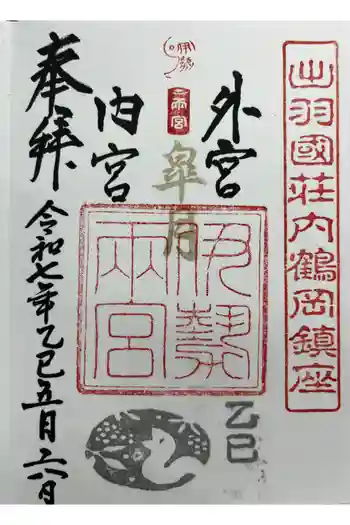 出羽國荘内鶴岡鎮座
外宮
伊勢
両宮
皐月
伊勢
両宮
乙巳
内宮
奉拝
令和七年乙巳五月二六日